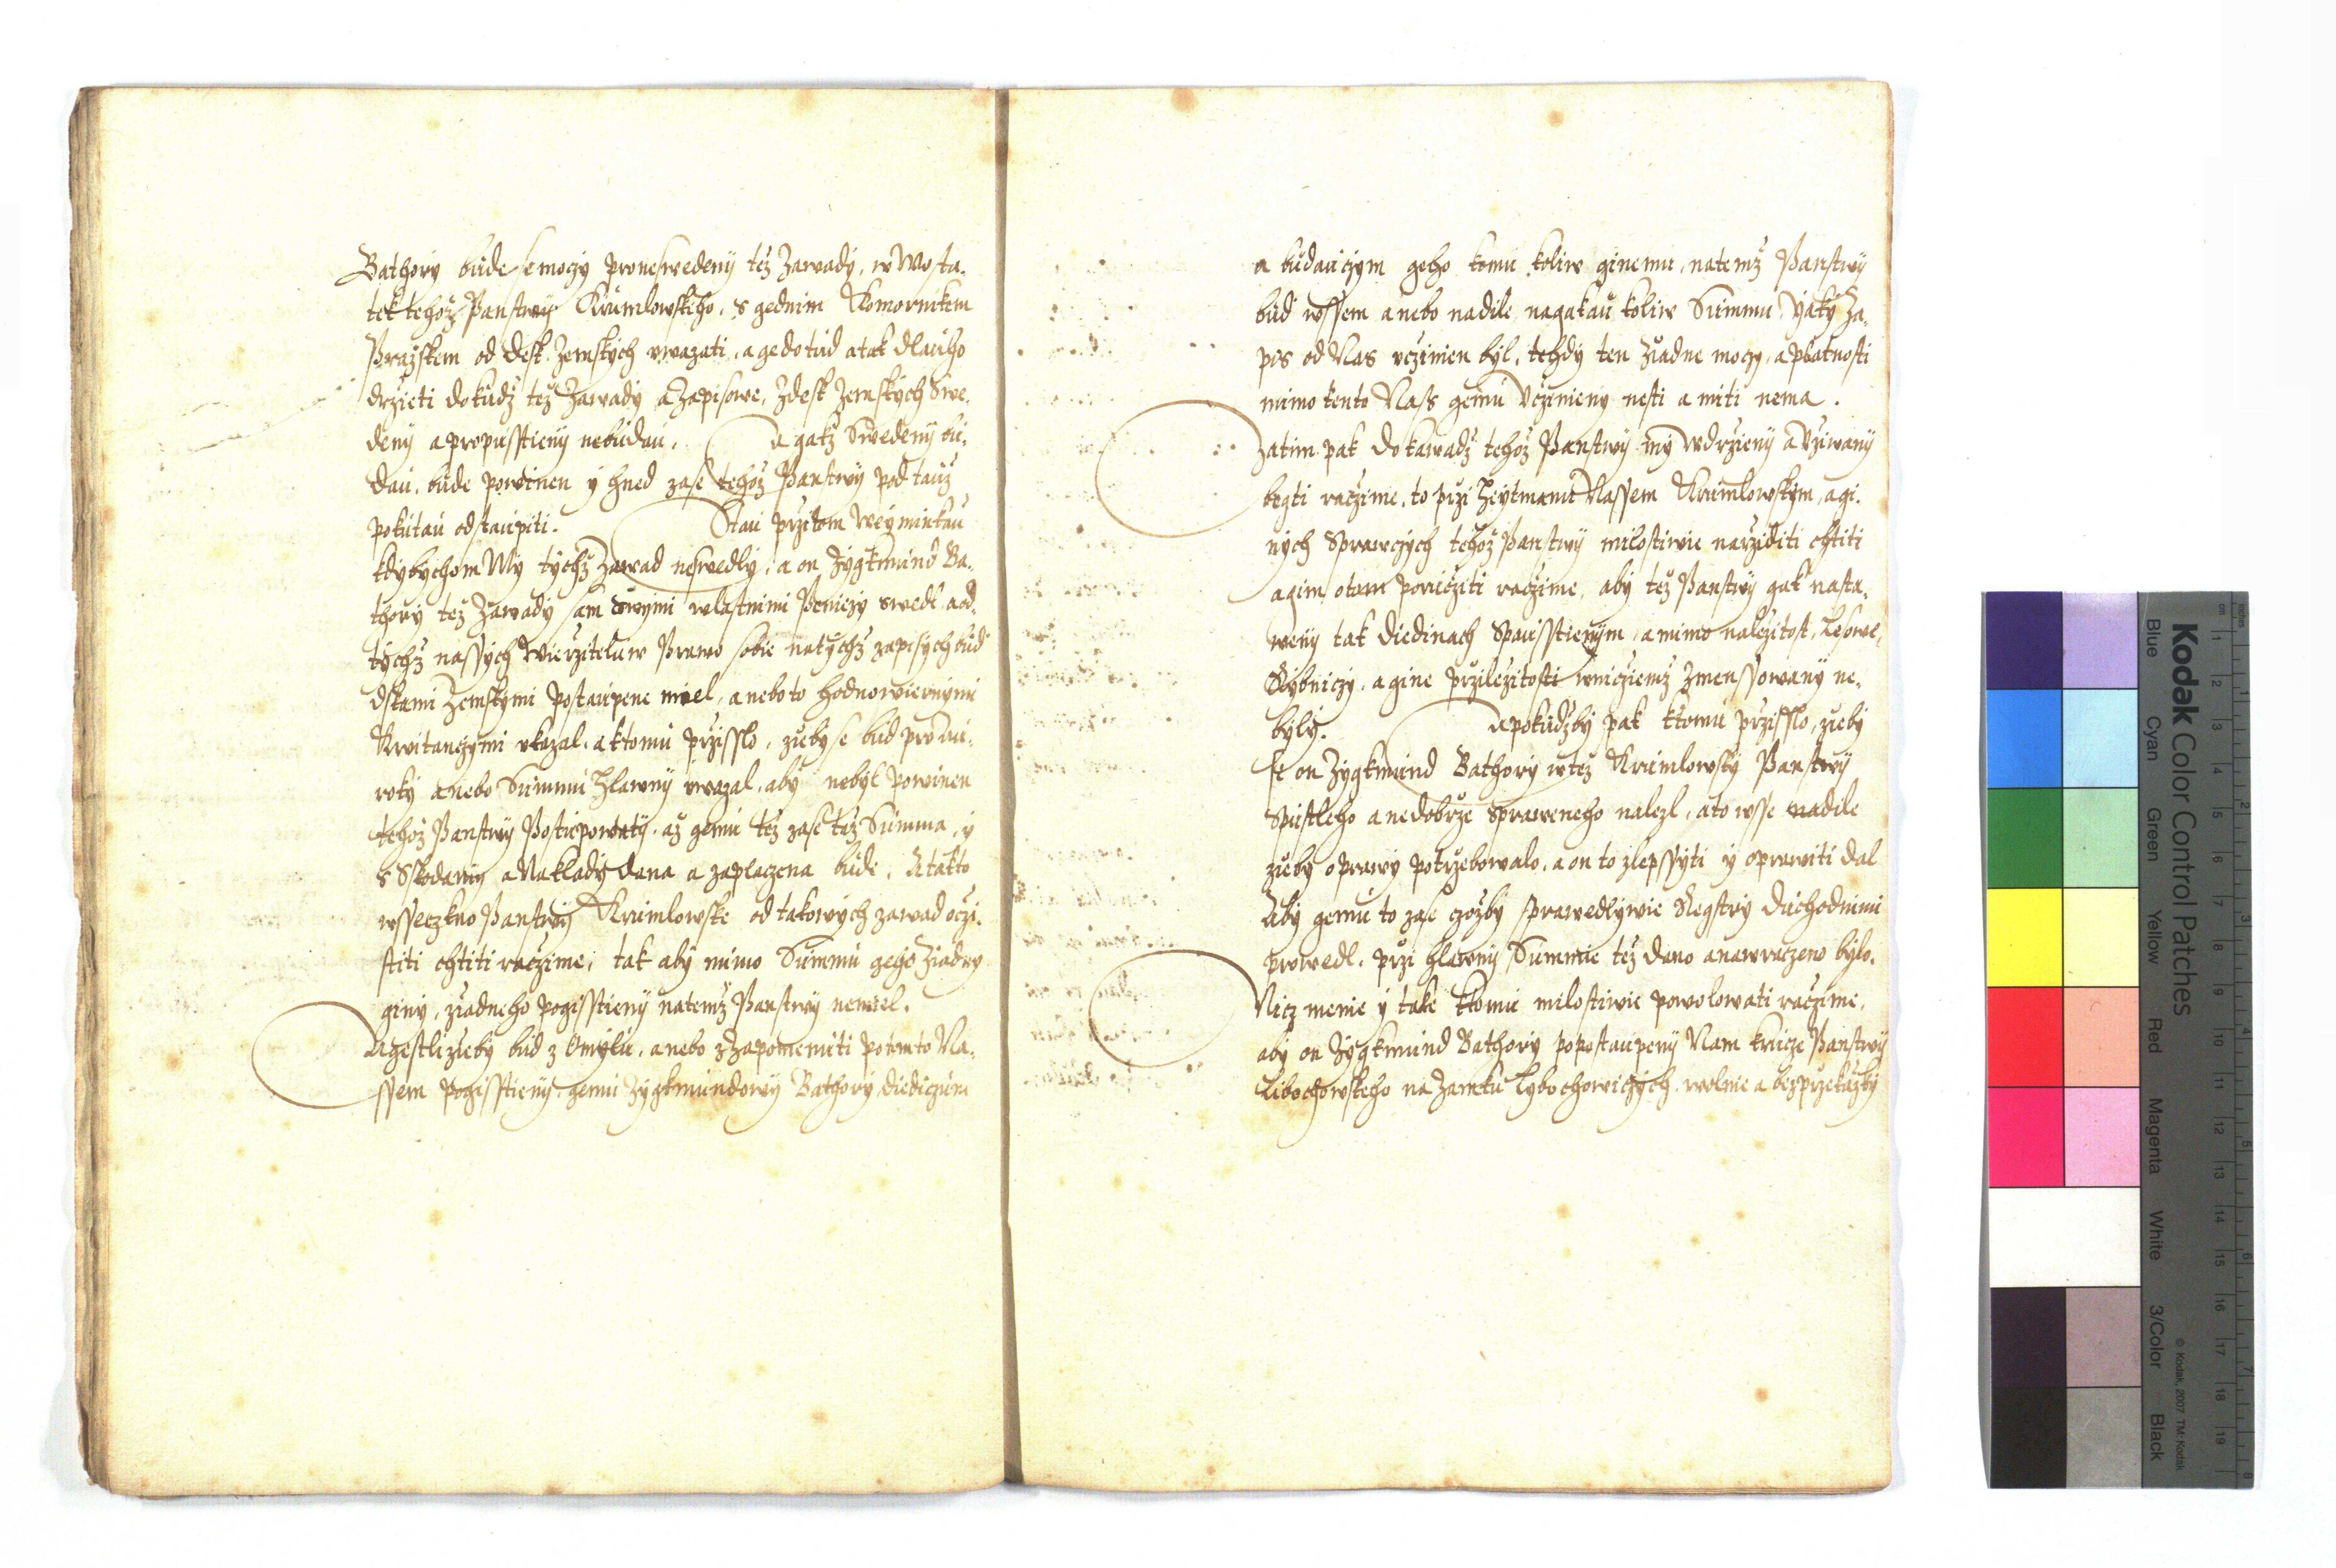 Bathory bude se moczy proneswedeny tez Zawady, w Wosta-
tek tehoz Panstwy Krumlowskeho, s gednim Komornikem
Prazskem od Desk Zemskych uwazati, a ge do tud a tak dlauho
drzieti dokudz tez Zawady a Zapisowe, z desk Zemskych Swe-
deny a propusstieny nebudau, A gakz Swedeny bu-
dau, bude powinen y hned zase tehoz Panstwy pod tauz
pokutau odstaupiti. Stau przitom Weyminkau
kdybychom My tychz Zawad neswedly, a on Zygkmund Ba-
thory tez Zawady sam swymi wlastnimi Peniezy swedl a od
tychz nassych Wierziteluw Prawo sobie na tychz zapisych bud
dskami Zemskymi postaupene miel, a nebo to hodnowiernymi
Kwitanczymi ukazal, a ktomu przisslo, zieby se bud pro Au-
roky a nebo Summu Hlawny uwazal, aby nebyl powinen
tehoz Panstwy Postupowaty, az gemu tez zase taz Summa, y
s Sskodamy a Naklady dana a zaplaczena bude, A takto
wsseczkno Panstwy Krumlowske od takowych zawad oczi-
stiti chtiti raczime, tak aby mimo Summu geho Ziadny
giny, ziadneho pogisstieny na temz Panstwy nemiel.
A gestlizieby bud z Omylu, a nebo z Zapomenuti potomto Na-
ssem Pogisstieny gemu Zygkmundowy Bathory, Diediczum
a buduczym geho komu koliw ginemu, na temz Panstwy
bud wssem a nebo na dile, na gakau koliw Summu yaky Za-
pis od Nas uczinien byl, tehdy ten ziadne moczy, a platnosti
mimo tento Nass gemu Uczinieny nesti a miti nema.
Zatim pak dokawadz tehoz Panstwy my w drzieny a Uziwany
begti raczime, to przi Heytmanu Nassem Krumlowskym, a gi-
nych Sprawczych tehoz Panstwy milostiwie narziditi chtiti
a gim o tom poruczити raczime, aby tez Panstwy gak na sta-
weny tak Diedinach Spausstienym, a mimo nalezitost, Lesowe,
Rybniczy, a gine przilezitosti w niczemz zmenssowany ne-
byly. A pokudzby pak ktomu przisslo, zieby
se on Zygkmund Bathory w tez Krumlowsky Panstwy
Spustleho a nedobrze spraweneho nalezl, a to wsse na dile
zieby oprawy potrzebowalo, a on to zlepssyti y oprawiti dal
Aby gemu to zase czozby sprawedlywie Regstry duchodnimi
prowedl, przi hlawny Summie tez dano a nawraczeno bylo.
Nicz menie y take ktomu milostiwie powolowati raczime,
aby on Zygkmund Bathory po postaupeny Nam krucze Panstwy
Libochowskeho na Zamku Lybochowiczych wolnie a bez przekazky